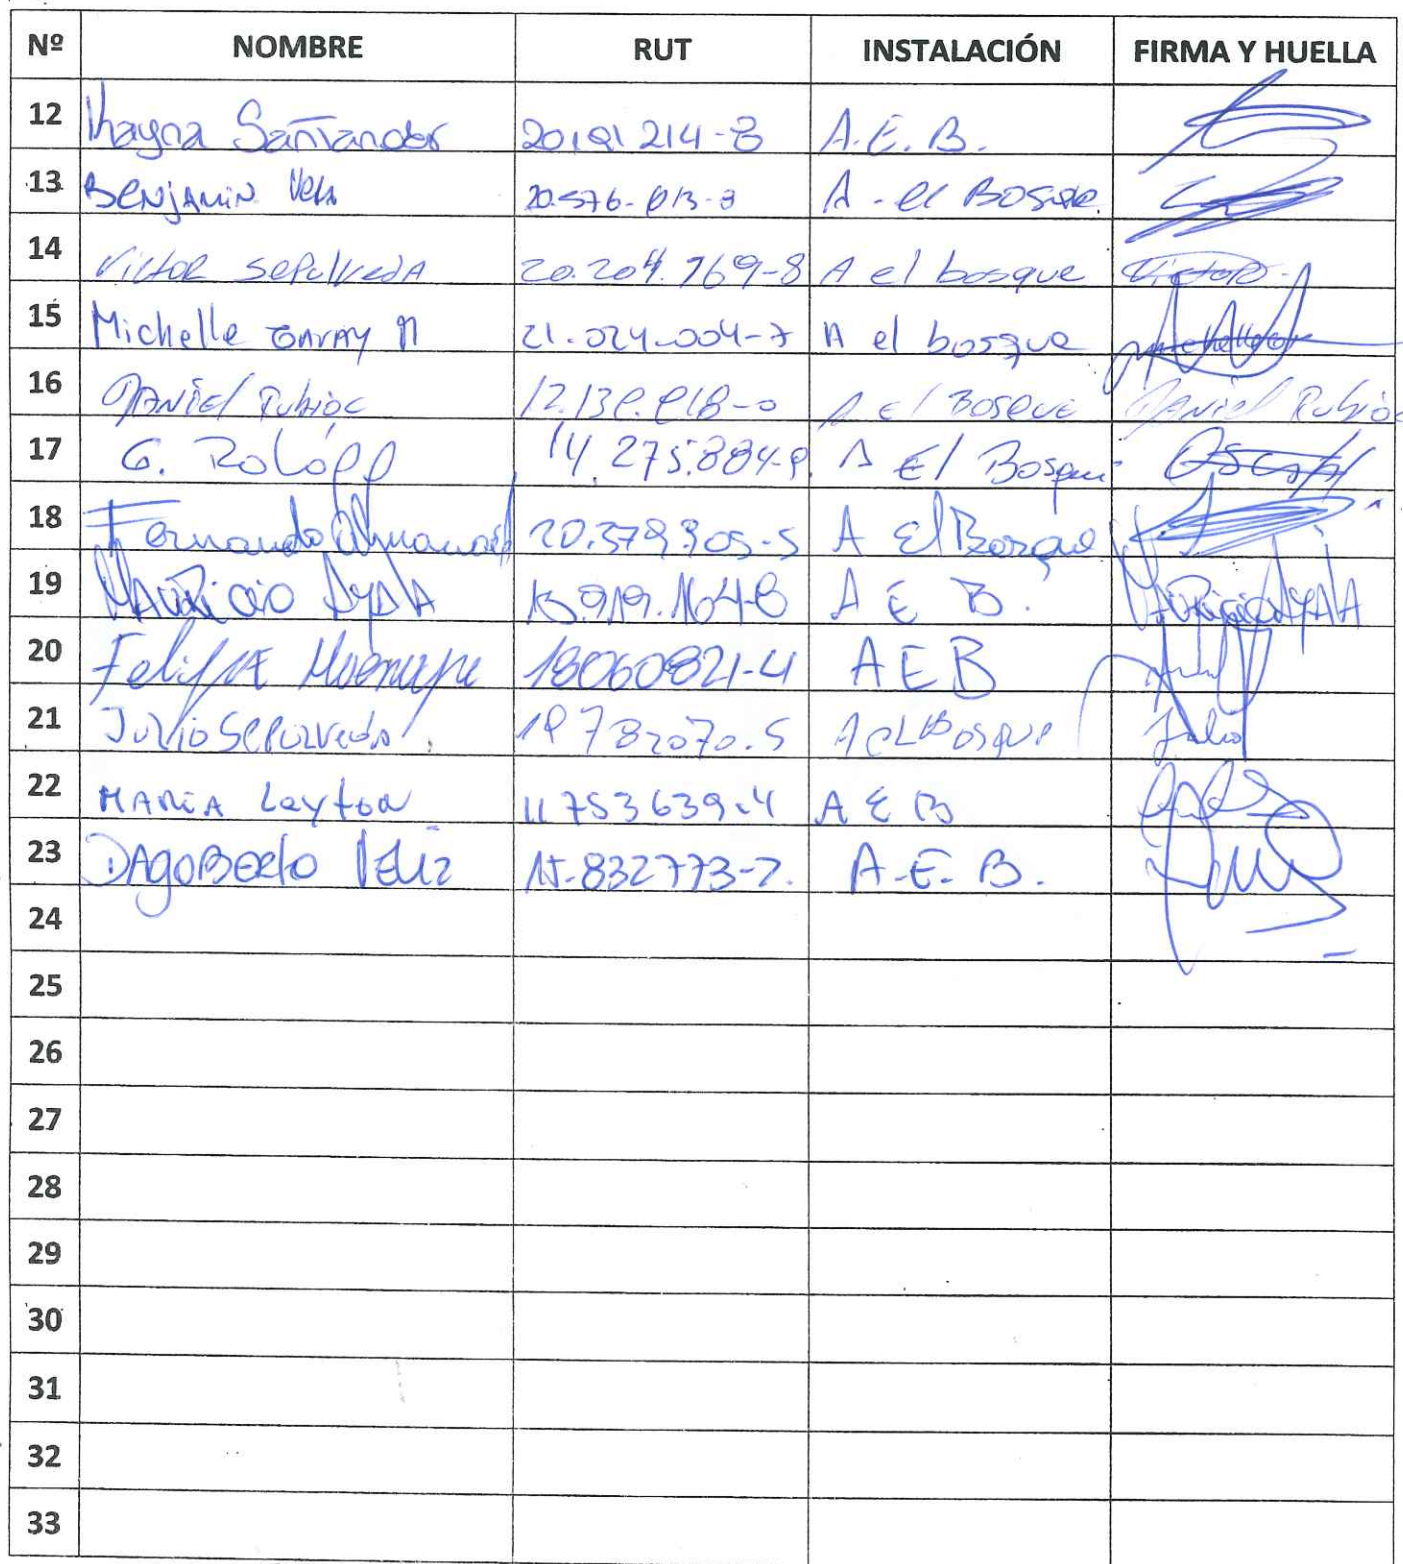 Nº NOMBRE RUT INSTALACIÓN FIRMA Y HUELLA
12 Santander A.E.B.
13 BENJAMIN Vera A - el BOSQUE
14 Victor sepulvedA 20.204.769-8 A el bosque Victor
15 Michelle GARAY M 21.024.004-7 A el bosque
16 DANiel Rubio A el BOSQUE DANiel Rubio
17 G. Roloff 14.275.884-9 A El Bosque
18 Fernando 20.379.305-5 A El Bosque
19 MAURicio AyAlA 13.919.164-8 A E B. MAURicio AyAlA
20 Felipe 18060821-4 A E B
21 Julio Sepulveda 19782070.5 A eL Bosque Julio
22 MARiA Leyton 11753639-4 A E B
23 DAgoBerto VeLiz 15-832773-7. A-E-B.
24
25
26
27
28
29
30
31
32
33